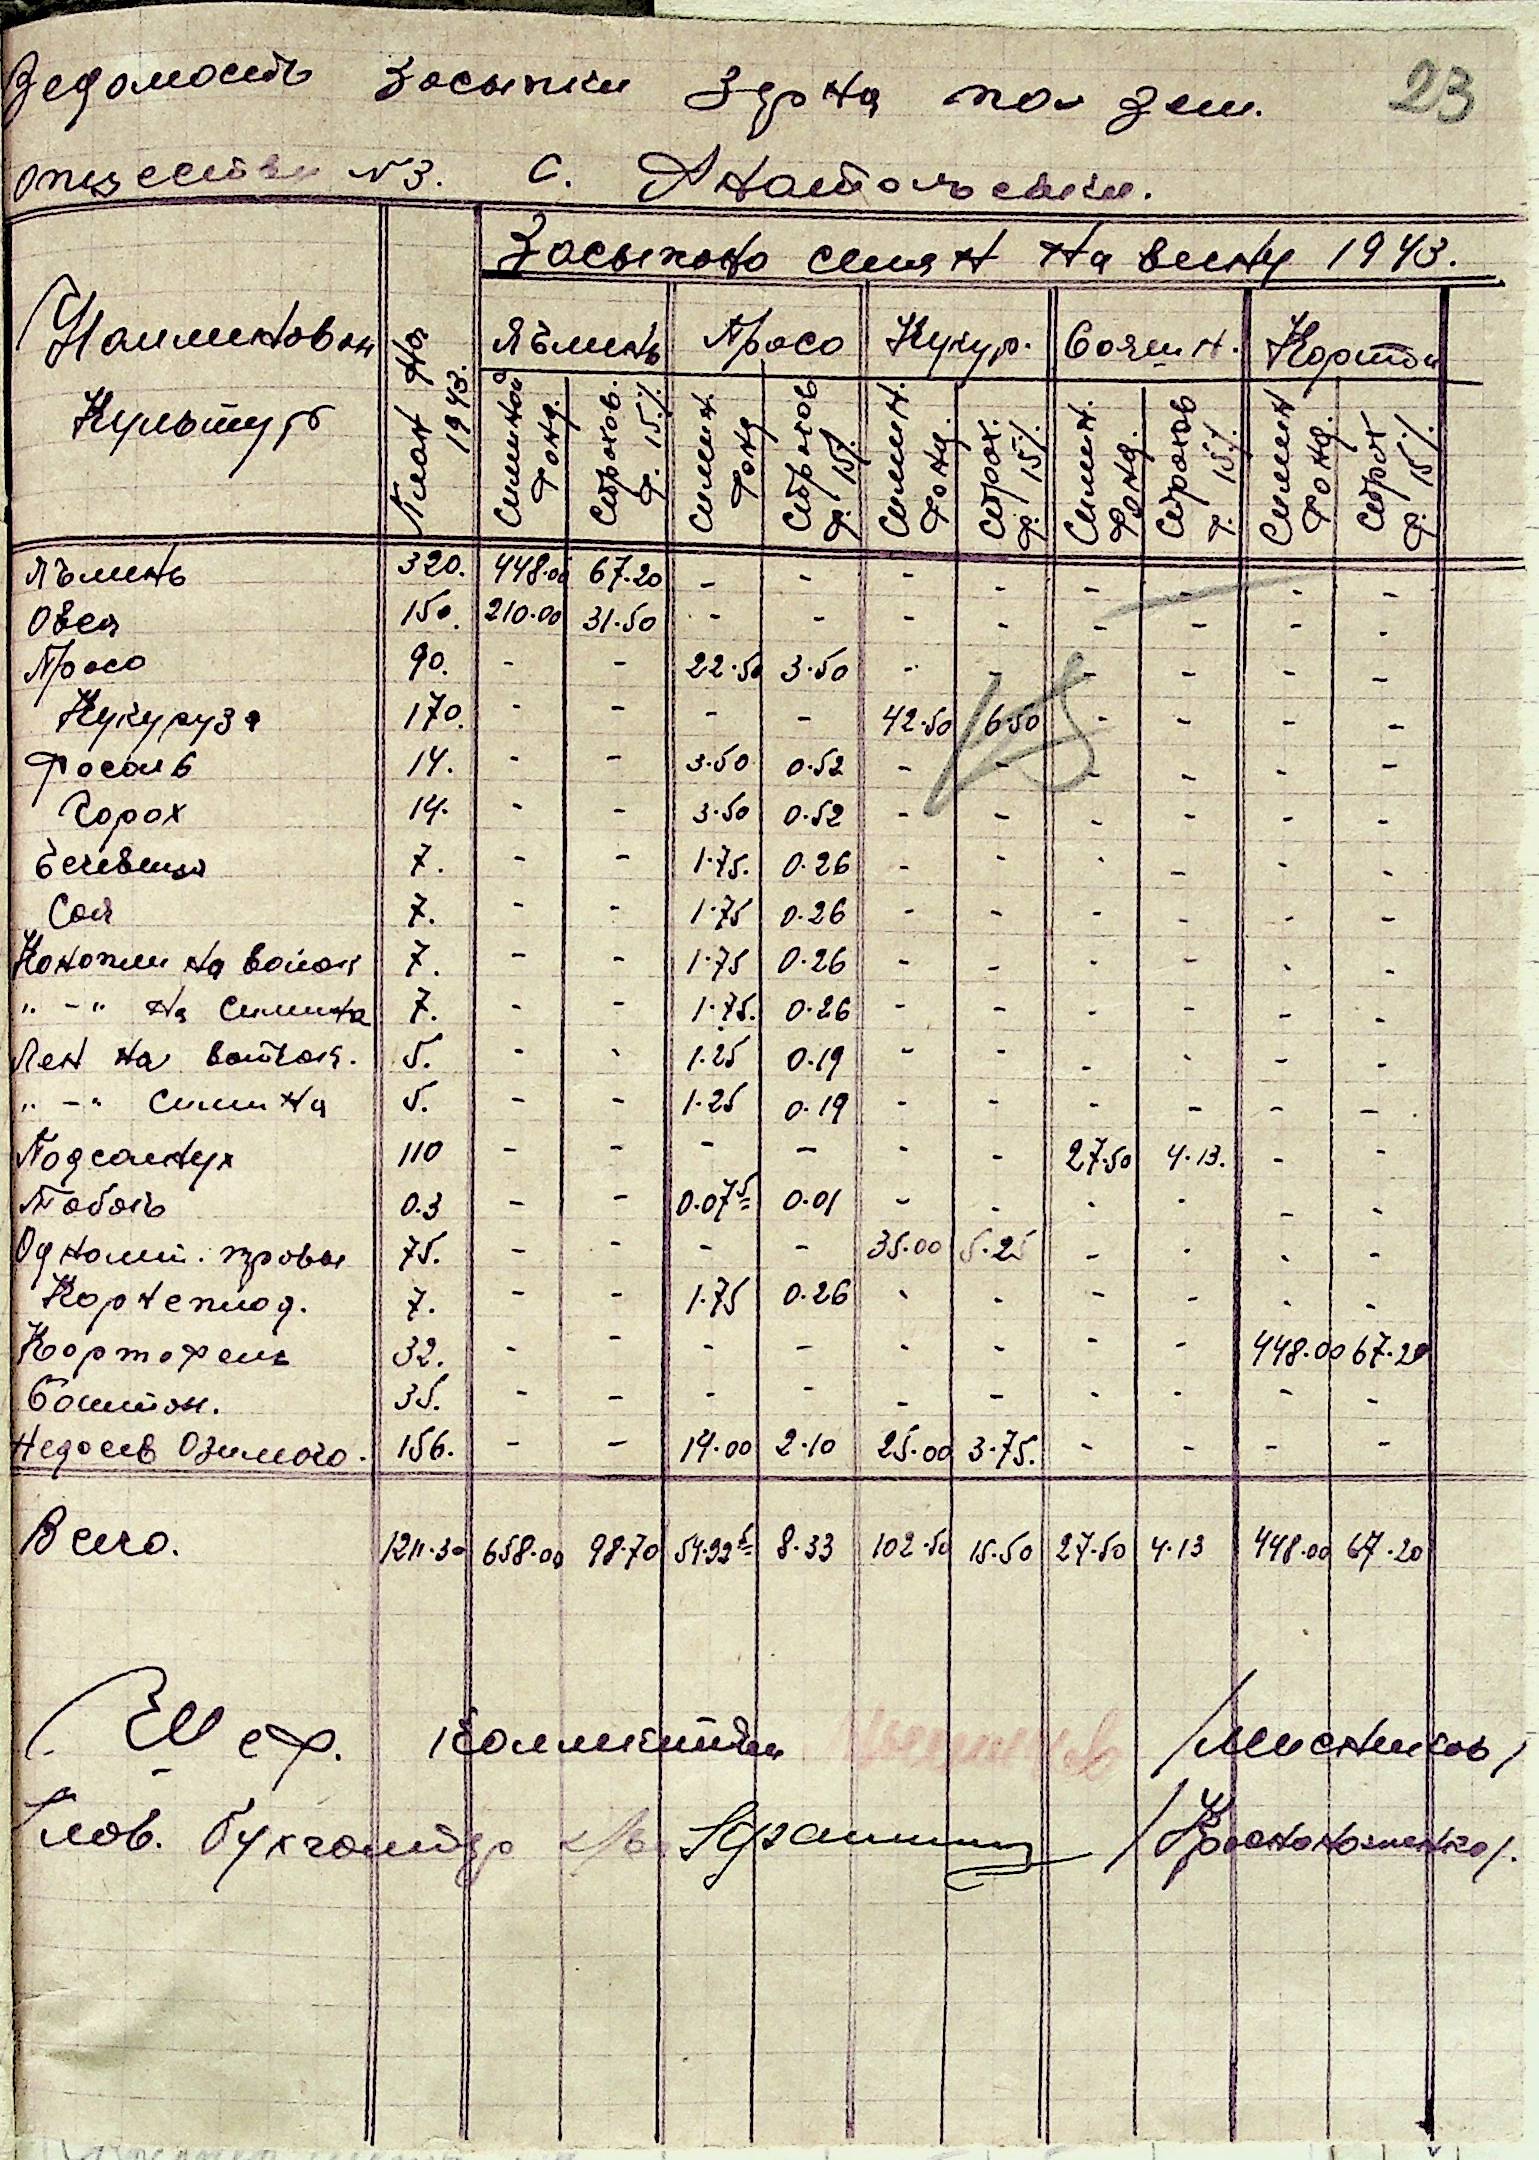 Ведомость засыпки зерна по зем. 23
опществу N3. С. Анатольевки.
Засыпано семян на весну 1943.
Наименован Культур
План на 1943.
Ячмень Просо Кукур. Сояшн. Картоп
Семеной фонд. Страхов. ф. 15% Семен. фонд Страхов ф. 15% Семен. фонд. Страх. ф. 15% Семен. фонд. Страхов ф. 15% Семен фонд. Страх ф. 15%
Ячмень 320. 448.00 67.20 - - - - - - - -
Овса 150. 210.00 31.50 - - - - - - - -
Просо 90. - - 22.50 3.50 - - - - - -
Кукуруза 170. - - - - 42.50 6.50 - - - -
Фасоль 14. - - 3.50 0.52 - - - - - -
Горох 14. - - 3.50 0.52 - - - - - -
Чечевица 7. - - 1.75. 0.26 - - - - - -
Соя 7. - - 1.75 0.26 - - - - - -
Конопли на волок 7. - - 1.75 0.26 - - - - - -
" - " на семина 7. - - 1.75. 0.26 - - - - - -
Лен на волок. 5. - - 1.25 0.19 - - - - - -
" - " семина 5. - - 1.25 0.19 - - - - - -
Подсолнух 110 - - - - - - 27.50 4.13. - -
Табак 0.3 - - 0.07⁵ 0.01 - - - - - -
Однолет. травы 75. - - - - 35.00 5.25 - - - -
Корнеплод. 7. - - 1.75 0.26 - - - - - -
Картофель 32. - - - - - - - - 448.00 67.20
Баштан. 35. - - - - - - - - - -
Недосев Озимого. 156. - - 14.00 2.10 25.00 3.75. - - - -
Всего. 1211.30 658.00 98.70 54.92⁵ 8.33 102.50 15.50 27.50 4.13 448.00 67.20
Шеф. /Мисников/
Глав. Бухгалтер